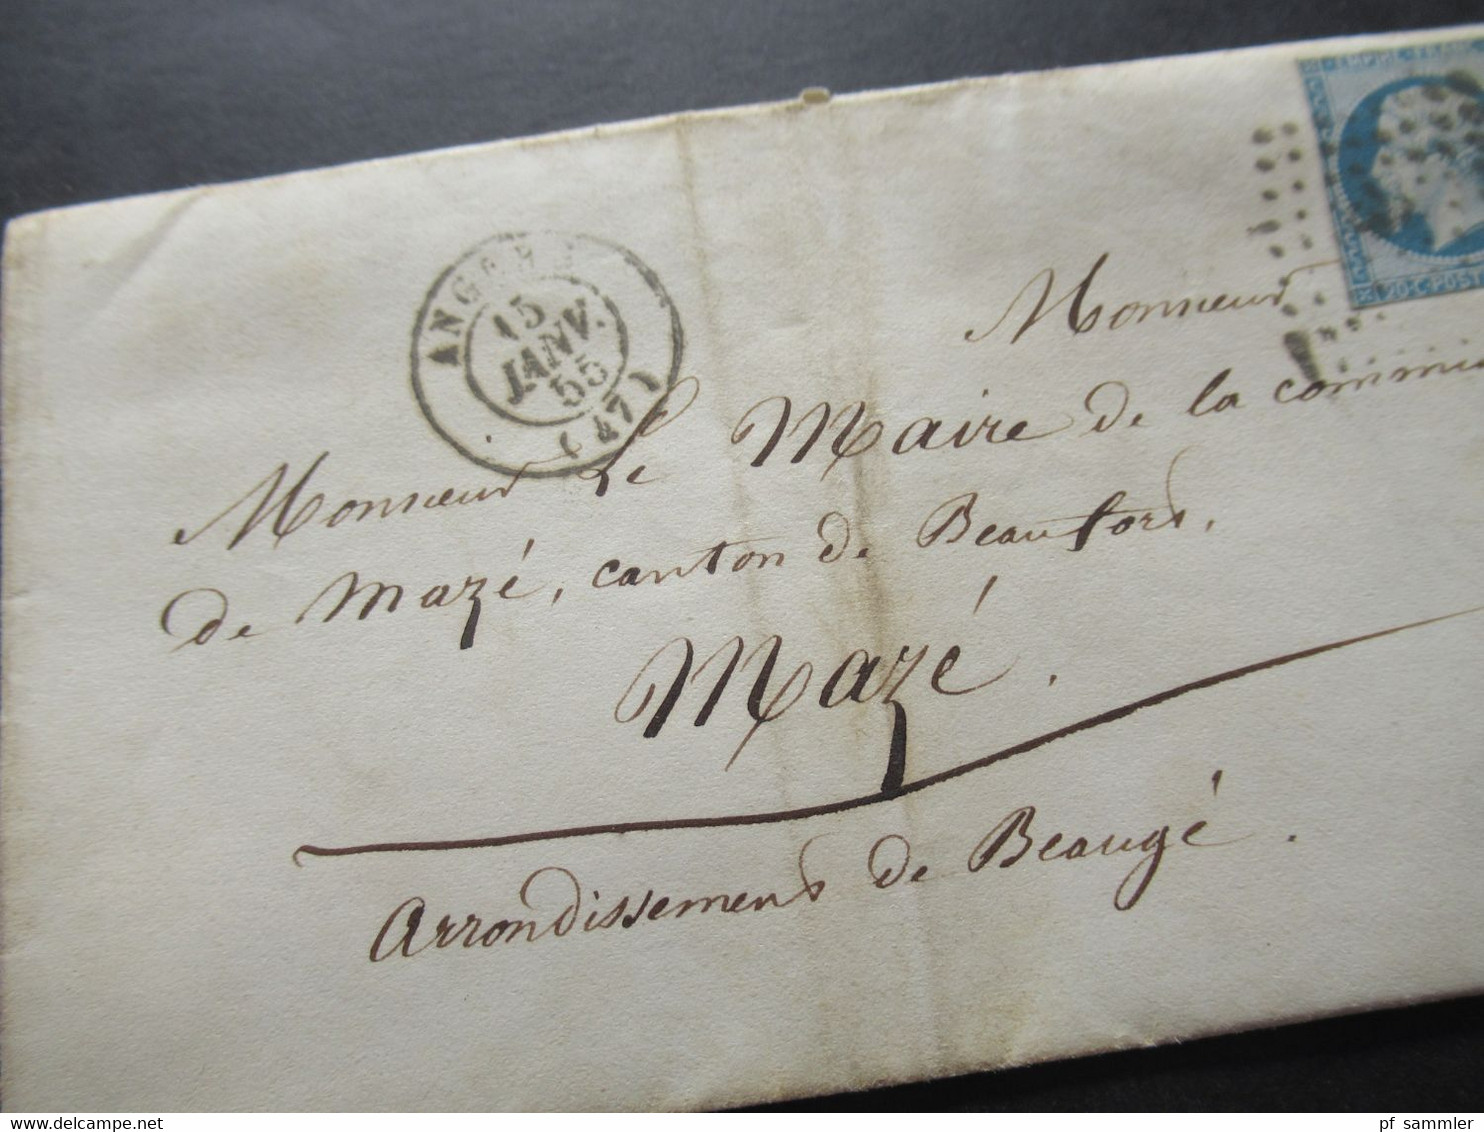 EMPIRE FRANC
20 C POST
ANGERS
15
JANV.
55
(47)
Monsieur
Monsieur Le Maire de la commu
de Mazé, canton de Beaufort,
Mazé.
Arrondissement de Beaugé.
pf_sammler